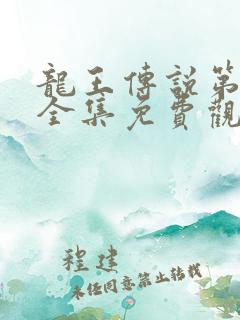 龍王傳說第
全集免費觀
程建
未經同意禁止轉載